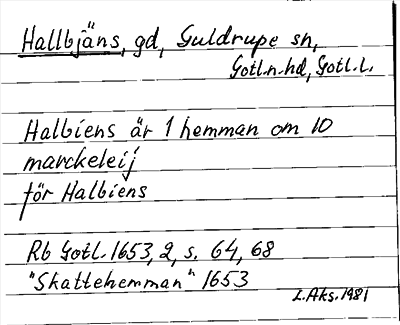 Hallbjäns, gd, Guldrupe sn,
Gotl.n.hd, Gotl.L.
Halbiens är 1 hemman om 10
marckeleij
för Halbiens
Rb Gotl. 1653, 2, s. 64, 68
"Skattehemman" 1653
L.Aks. 1981